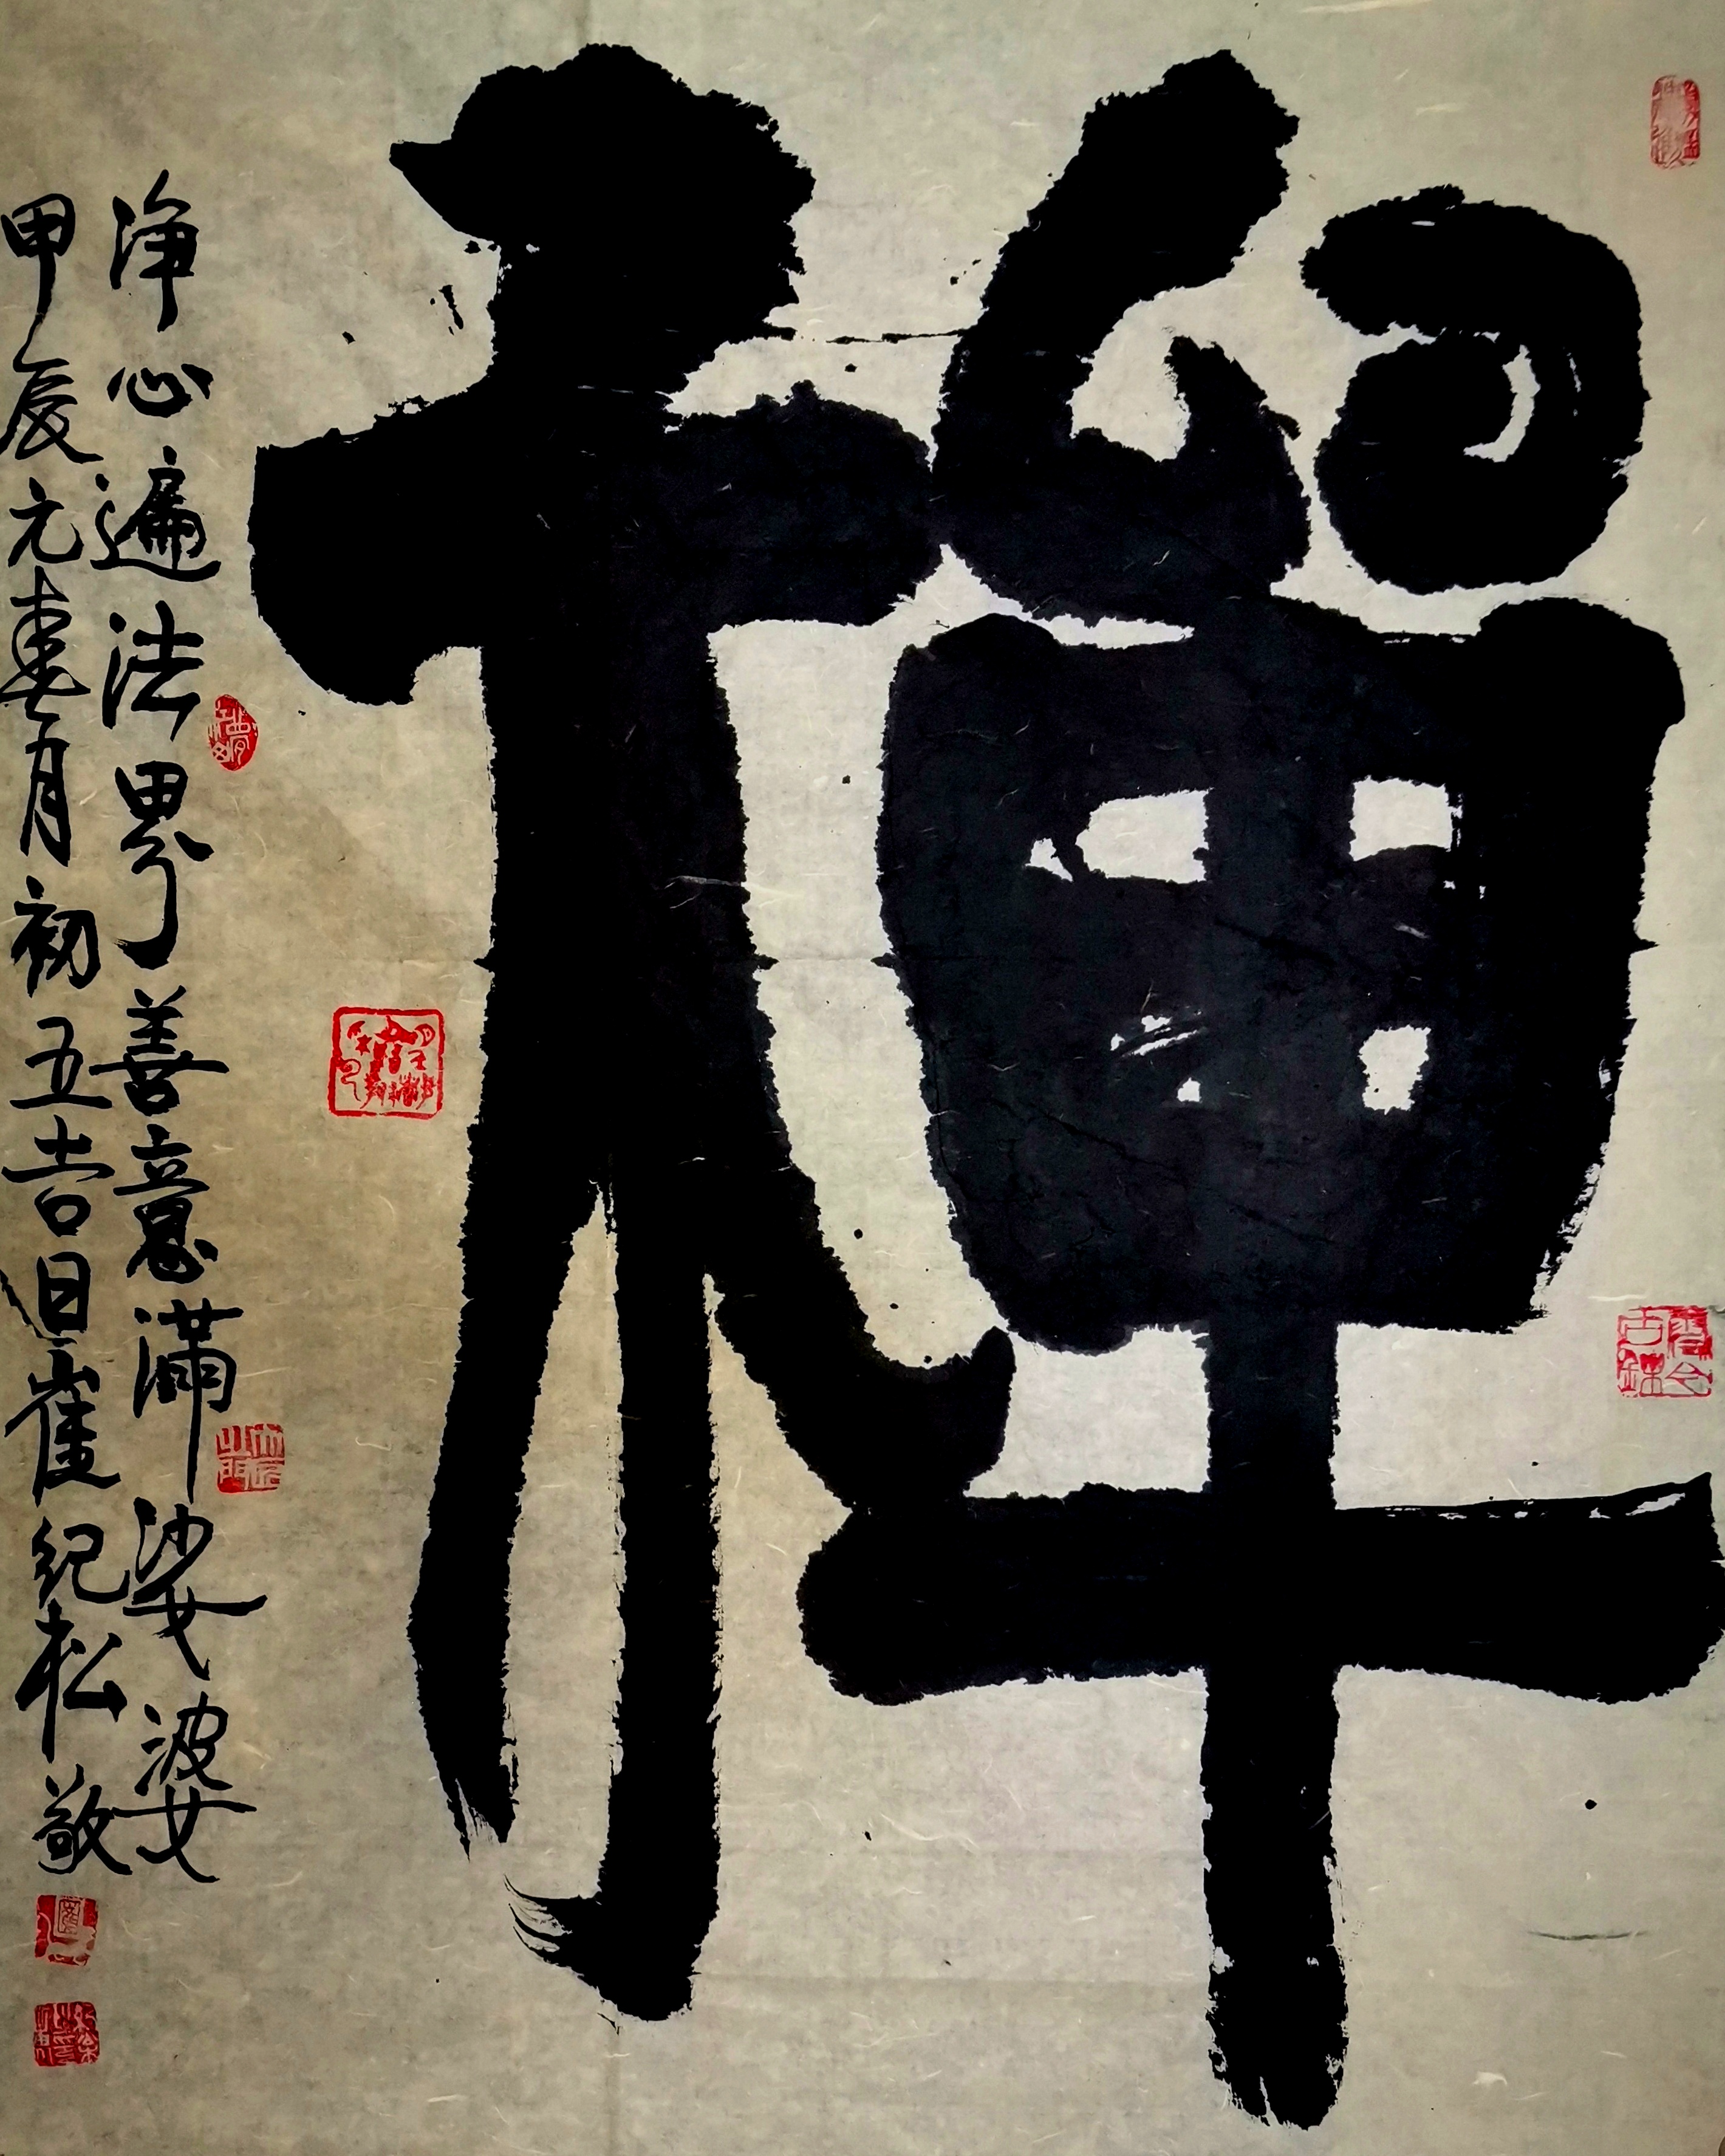 禅
净心遍法界善意满娑婆
甲辰元春月初五吉日崔纪松敬